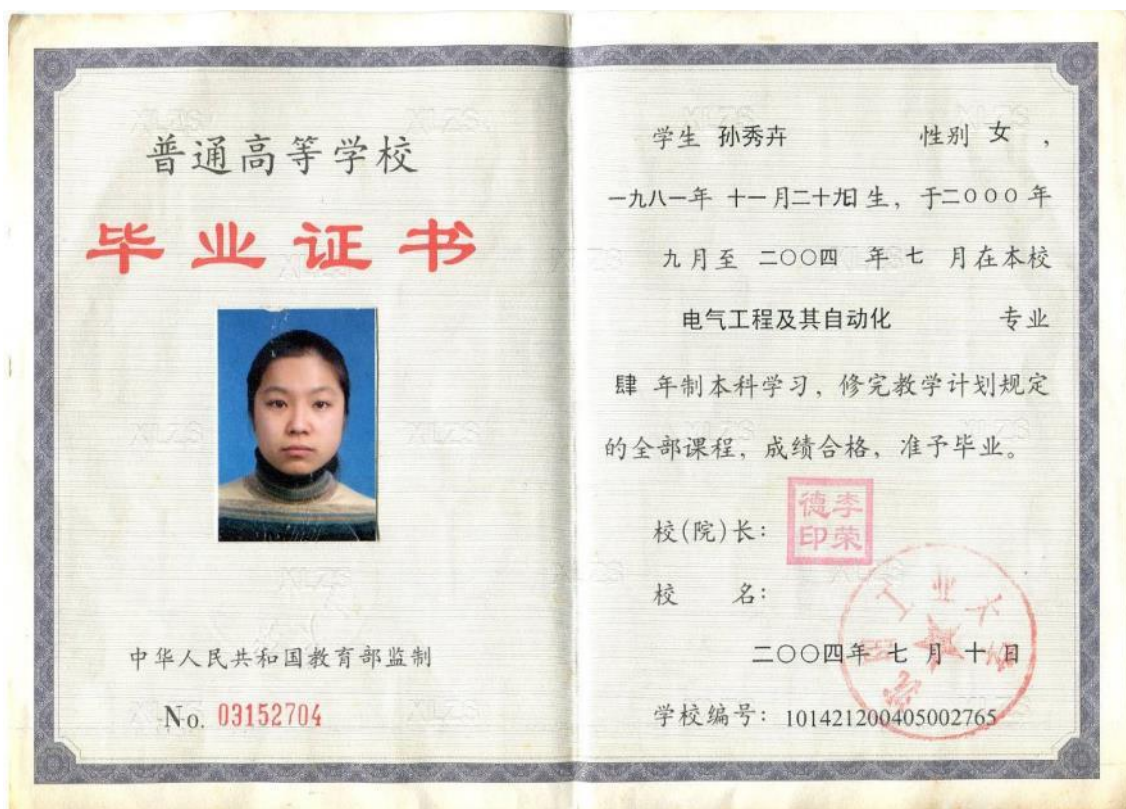 普通高等学校
毕业证书
中华人民共和国教育部监制
No. 03152704
学生 孙秀卉 性别 女 ,
一九八一年 十一月二十九日生, 于二000年
九月至 二〇〇四 年 七 月在本校
电气工程及其自动化 专业
肆 年制本科学习, 修完教学计划规定
的全部课程, 成绩合格, 准予毕业。
校(院)长: 李荣德印
校 名: 沈阳工业大学
二〇〇四年 七 月 十 日
学校编号: 101421200405002765
XLZS